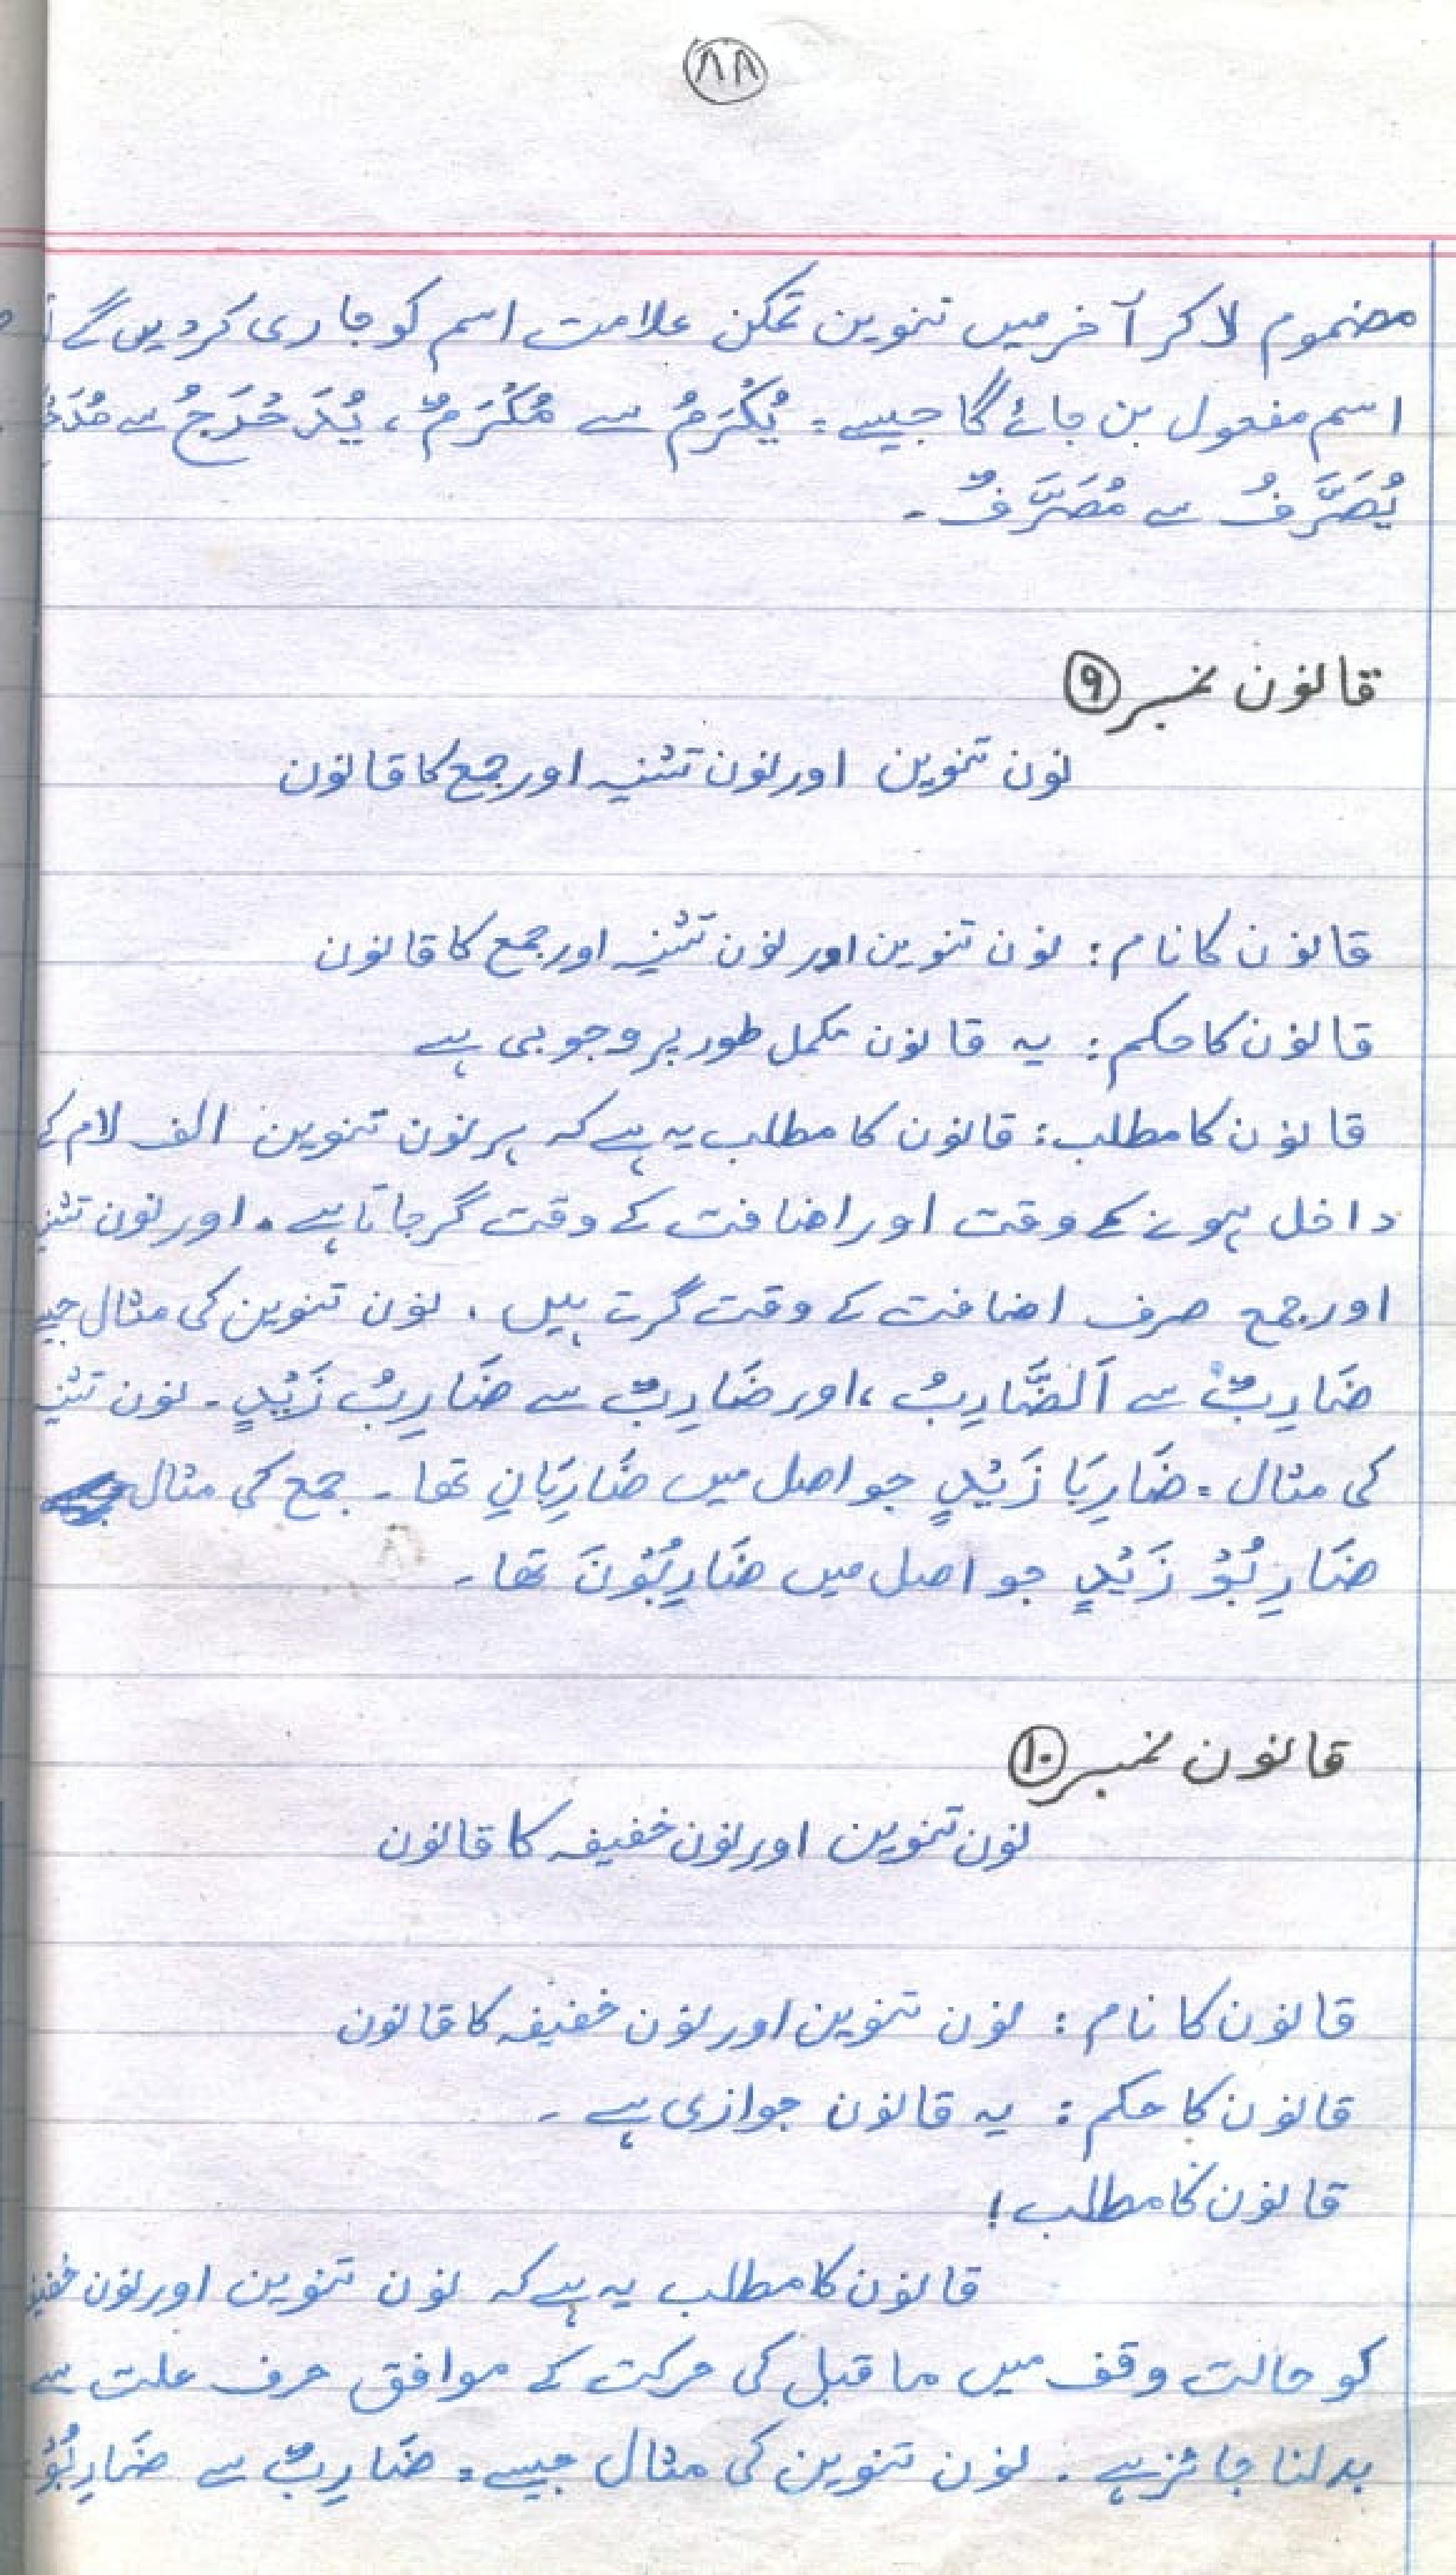 ۸۸
مضموم لا کر آخر میں تنوین تمکن علامت اسم کو جاری کر دیں گے
اسم مفعول بن جائے گا جیسے: یُکْرَمُ سے مُکْرَمٌ، یُدَحْرَجُ سے
یُصَرَّفُ سے مُصَرَّفٌ۔
قانون نمبر ۹
نون تنوین اور نون تثنیہ اور جمع کا قانون
قانون کا نام: نون تنوین اور نون تثنیہ اور جمع کا قانون
قانون کا حکم: یہ قانون مکمل طور پر وجوبی ہے
قانون کا مطلب: قانون کا مطلب یہ ہے کہ ہر نون تنوین الف لام کے
داخل ہونے کے وقت اور اضافت کے وقت گر جاتا ہے۔ اور نون تثنیہ
اور جمع صرف اضافت کے وقت گرتے ہیں۔ نون تنوین کی مثال جیسے
ضَارِبٌ سے اَلضَّارِبُ، اور ضَارِبٌ سے ضَارِبُ زَیْدٍ۔ نون تثنیہ
کی مثال: ضَارِبَا زَیْدٍ جو اصل میں ضَارِبَانِ تھا۔ جمع کی مثال
ضَارِبُوْ زَیْدٍ جو اصل میں ضَارِبُوْنَ تھا۔
قانون نمبر ۱۰
نون تنوین اور نون خفیفہ کا قانون
قانون کا نام: نون تنوین اور نون خفیفہ کا قانون
قانون کا حکم: یہ قانون جوازی ہے۔
قانون کا مطلب!
قانون کا مطلب یہ ہے کہ نون تنوین اور نون خفیفہ
کو حالت وقف میں ما قبل کی حرکت کے موافق حرف علت سے
بدلنا جائز ہے۔ نون تنوین کی مثال جیسے: ضَارِبٌ سے ضَارِبُوْ